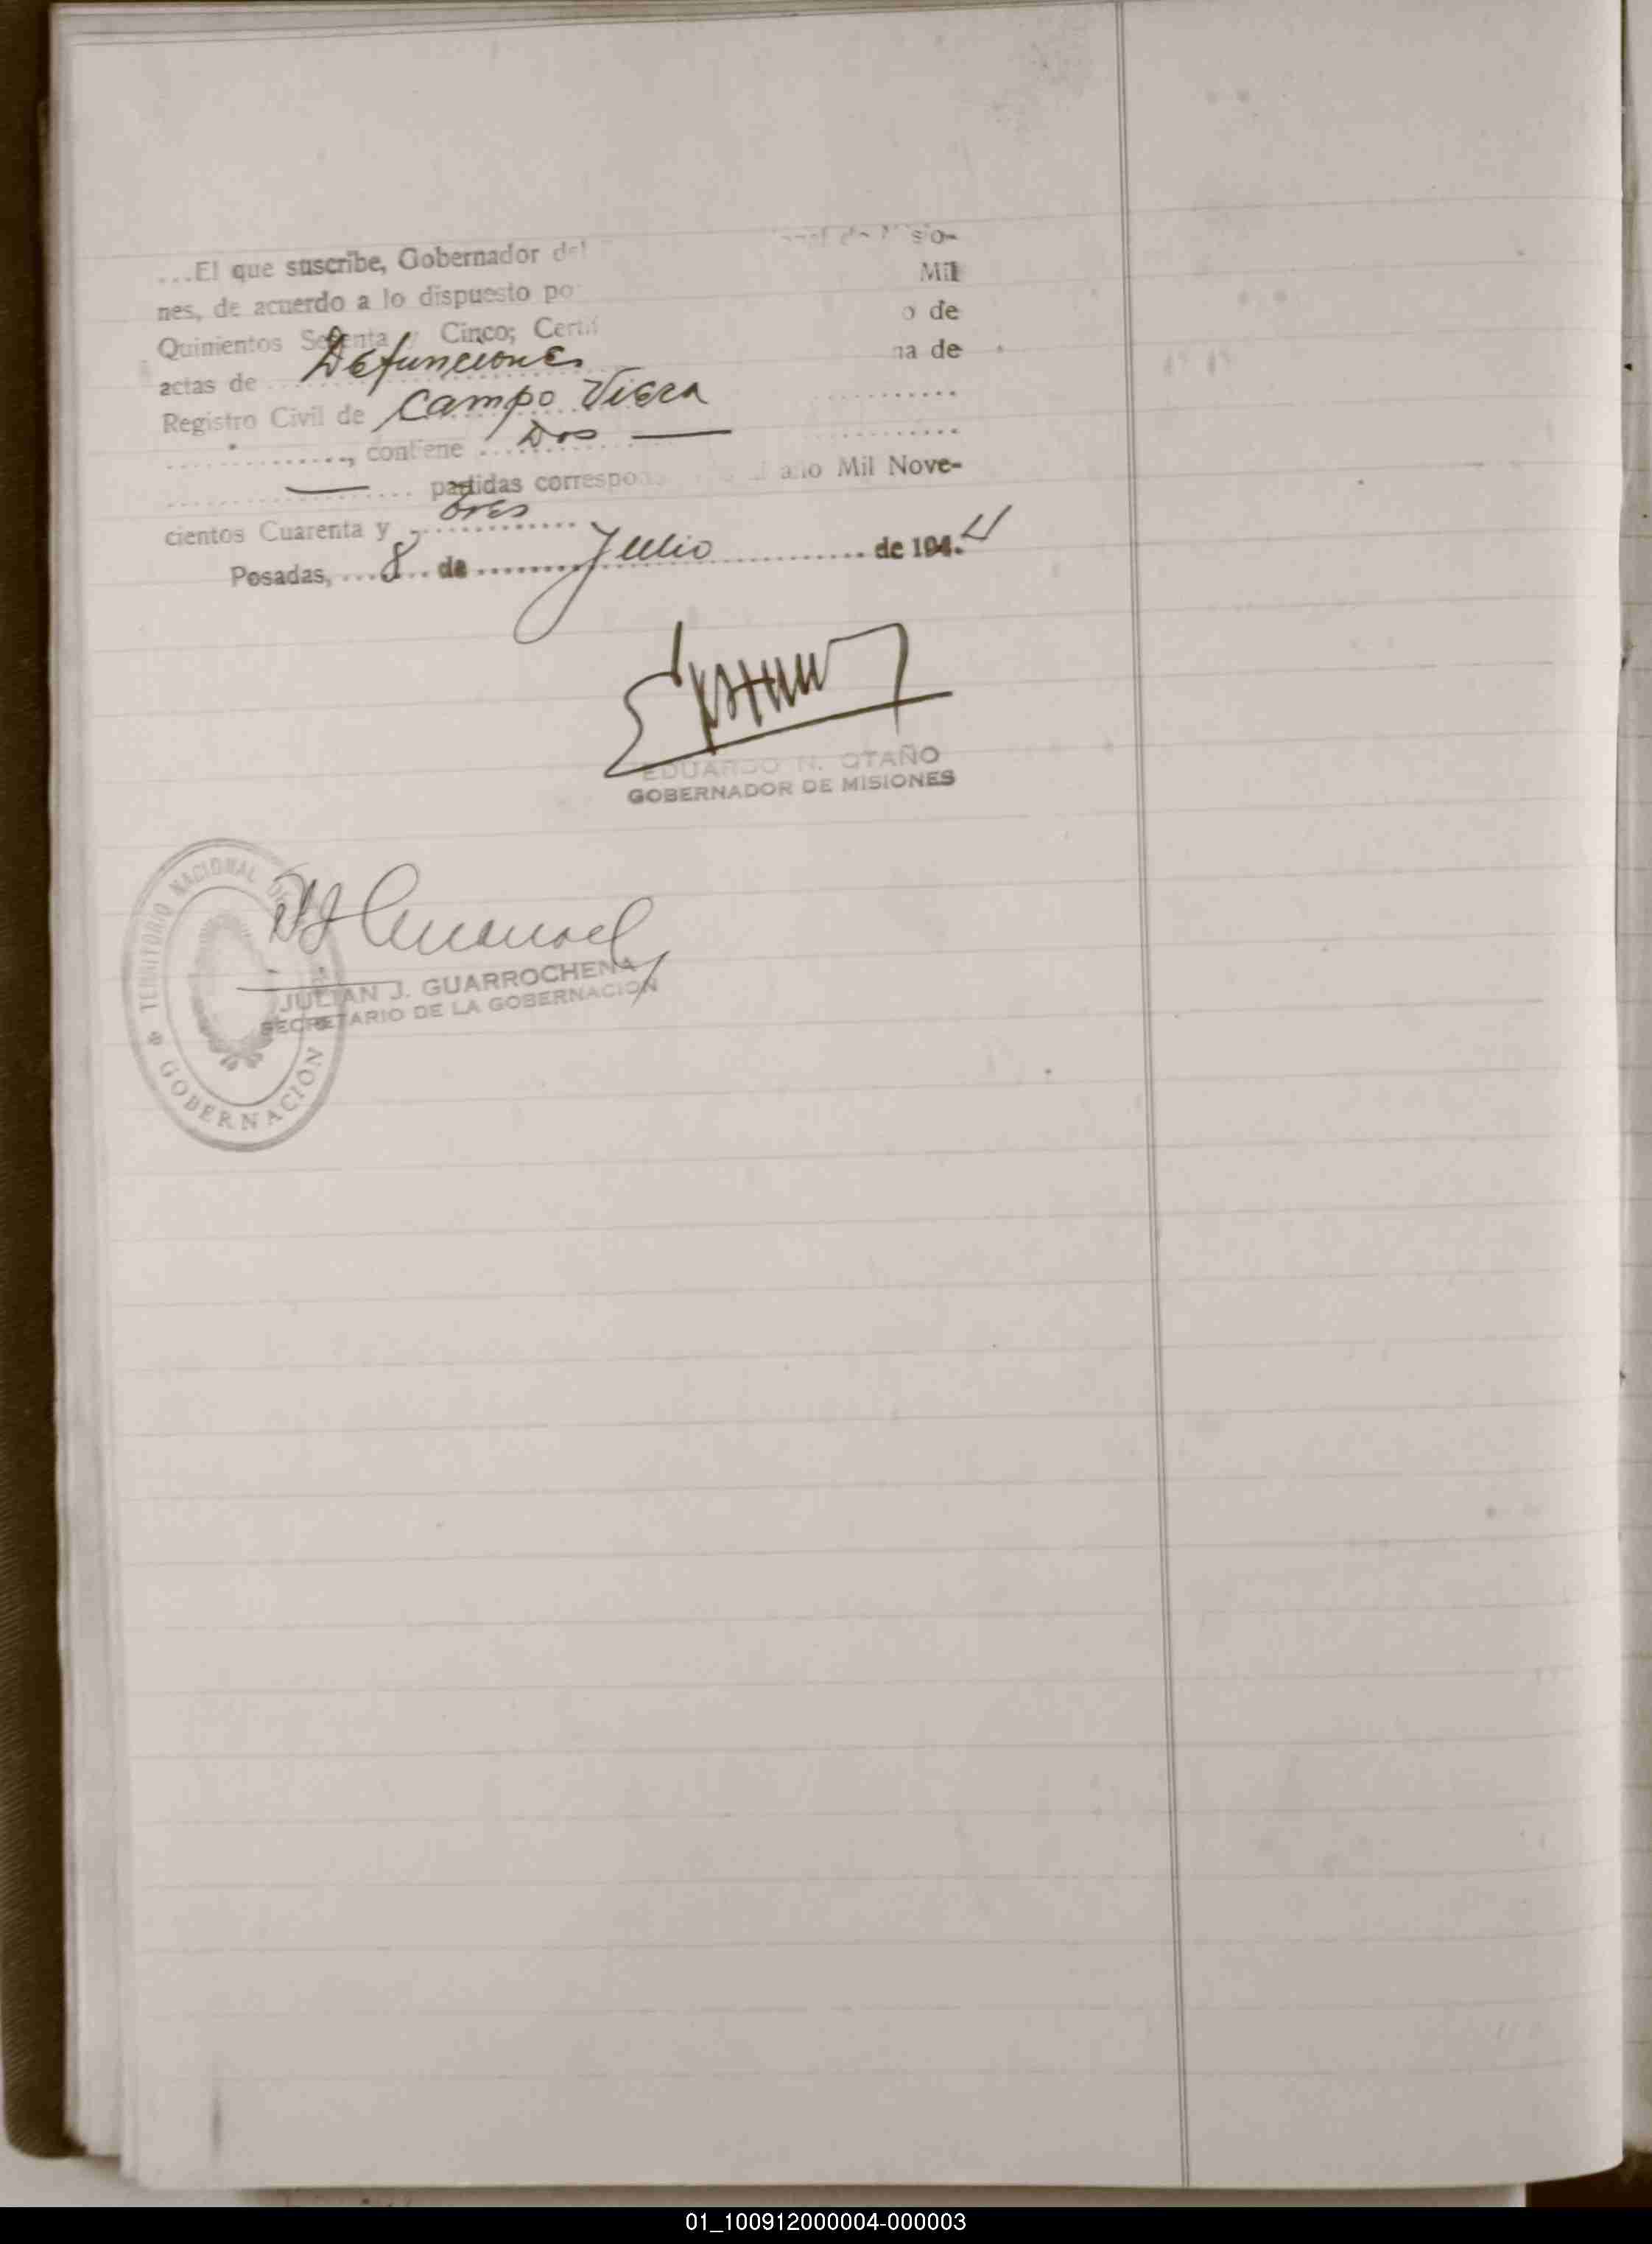 ...El que suscribe, Gobernador del sio-
nes, de acuerdo a lo dispuesto po Mil
Quinientos Setenta y Cinco; Certif o de
actas de Defunciones na de
Registro Civil de Campo Viera
, contiene Dos —
— partidas correspo año Mil Nove-
cientos Cuarenta y tres
Posadas, 8 de Julio de 194.4
EDUARDO N. OTAÑO
GOBERNADOR DE MISIONES
TERRITORIO NACIONAL DE
GOBERNACION
JULIAN J. GUARROCHENA
SECRETARIO DE LA GOBERNACION
01_100912000004-000003